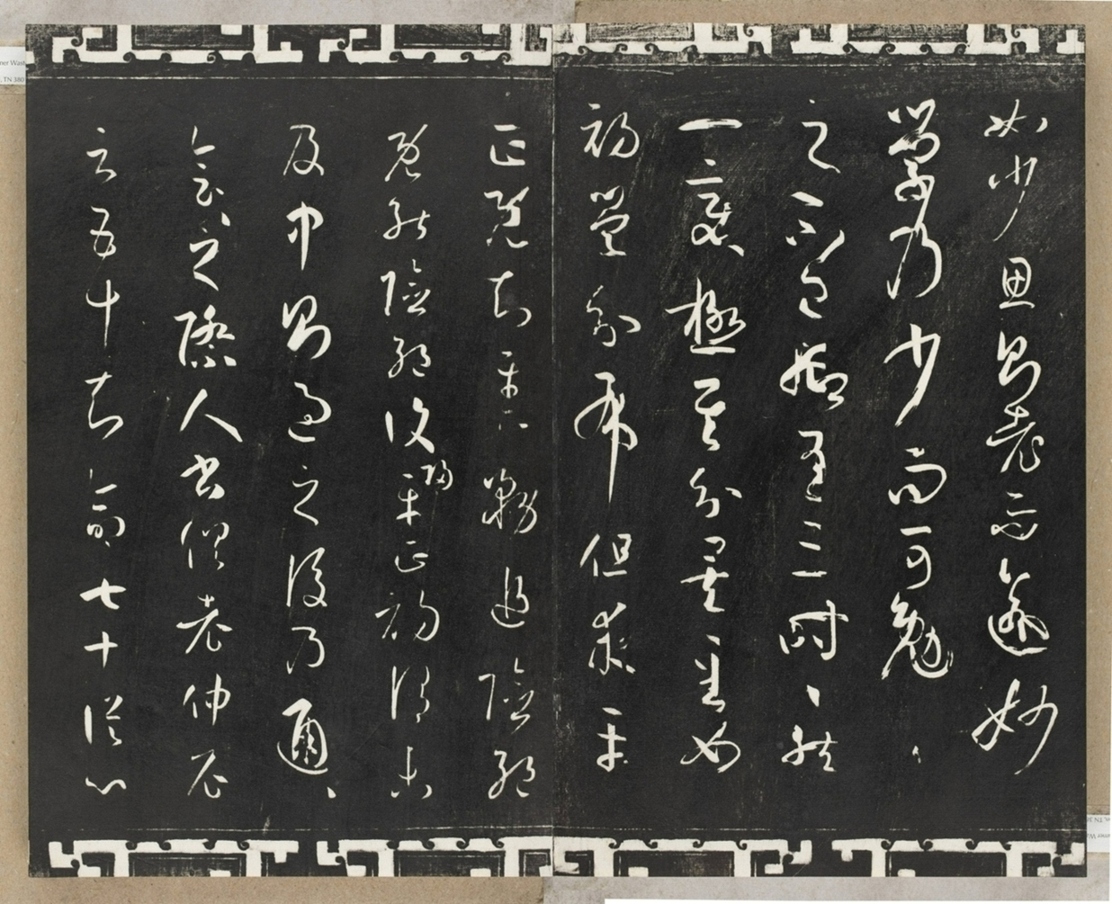 如少思則老而逾妙
學乃少而可勉〻
之不已抑有三時〻然
一變極其分矣至如
初學分布但求平
正既知平正務追險絕
既能險絕復歸平正初謂未
及中則過之後乃通〻
會〻之際人書俱老仲尼
云五十知命七十從心